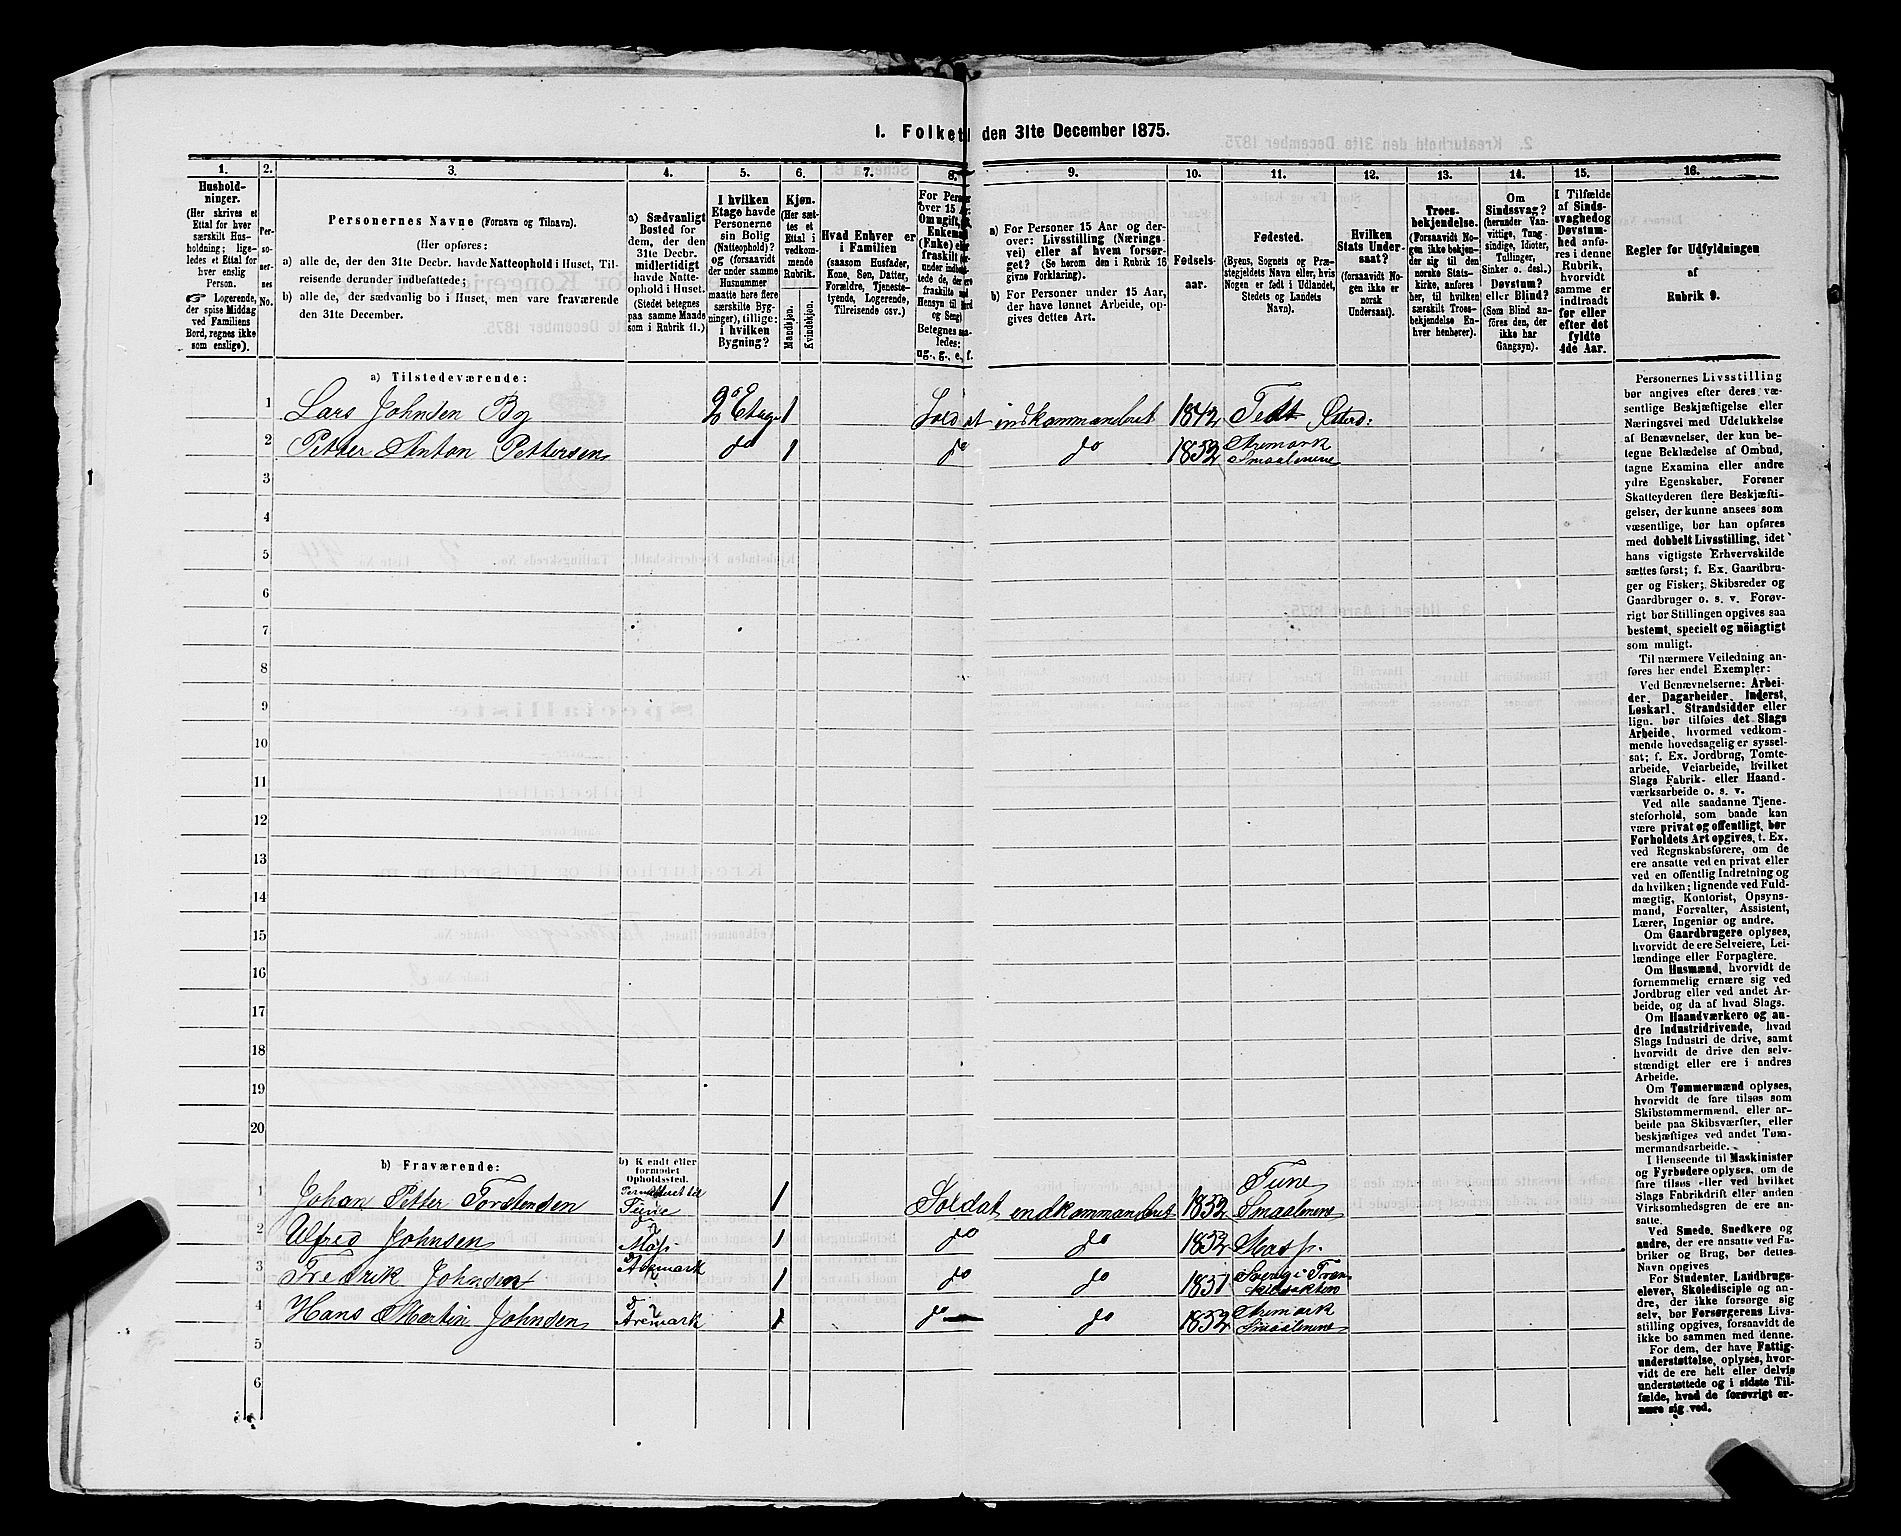 1. Folket den 31te December 1875.
1. 2. 3. 4. 5. 6. 7. 8. 9. 10. 11. 12. 13. 14. 15. 16.
Hushold-
ninger.
(Her skrives et
Ettal for hver
særskilt Hus-
holdning; lige-
ledes et Ettal for
hver enslig
Person.
☞ Logerende,
der spise Middag
ved Familiens
Bord, regnes ikke
som enslige).
Per-
so-
ner-
nes
No.
Personernes Navne (Fornavn og Tilnavn).
(Her opføres:
a) alle de, der den 31te Decbr. havde Natteophold i Huset, Til-
reisende derunder indbefattede;
b) alle de, der sædvanlig bo i Huset, men vare fraværende
den 31te December.
a) Sædvanligt
Bosted for
dem, der den
31te Decbr.
midlertidigt
havde Natte-
ophold i Huset.
(Stedet betegnes
paa samme Maade
som i Rubrik 11.)
I hvilken
Etage havde
Personerne
sin Bolig
(Natteophold)?
og (forsaavidt
der under samme
Husnummer
maatte høre flere
særskilte Byg-
ninger), tillige:
i hvilken
Bygning?
Kjøn.
(Her sæt-
tes et
Ettal i
vedkom-
mende
Rubrik.
Mandkjøn.
Kvindekjøn.
Hvad Enhver er
i Familien
(saasom Husfader,
Kone, Søn, Datter,
Forældre, Tjeneste-
tyende, Logerende,
Tilreisende osv.)
For Perso
over 15 A
Om ugift,
Enkema
(Enke) ell
fraskilt
Betegnes saa-
ledes:
ug., g., e., f.
a) For Personer 15 Aar og der-
over: Livsstilling (Nærings-
vei) eller af hvem forsør-
get? (Se herom den i Rubrik 16
givne Forklaring).
b) For Personer under 15 Aar,
der have lønnet Arbeide, op-
gives dettes Art.
Fødsels-
aar.
Fødested.
(Byens, Sognets og Præ-
stegjeldets Navn eller, hvis
Nogen er født i Udlandet,
Stedets og Landets
Navn).
Hvilken
Stats Under-
saat?
(forsaavidt No-
gen ikke er
norsk
Undersaat).
Troes-
bekjendelse.
(Forsaavidt No-
gen ikke bekjen-
der sig til den
norske Stats-
kirke, anføres
her, til hvilken
særskilt Troes-
bekjendelse En-
hver henhører).
Om
Sindssvag?
(herunder Van-
vittige, Tung-
sindige, Idioter,
Tullinger,
Sinker o. desl.)
Døvstum?
eller Blind?
(Som Blind an-
føres den, der
ikke har
Gangsyn).
I Tilfælde
af Sinds-
svaghed og
Døvstum-
hed anfø-
res i denne
Rubrik,
hvorvidt
samme er
indtraadt
før eller
efter det
fyldte
4de Aar.
Regler før Udfyldningen
af
Rubrik 9.
a) Tilstedeværende:
1 Lars Johnsen By 2 Etage 1 Soldat indkommanderet 1842
2 Petter Anton Pettersen do 1 do do 1852 Aremark
Smaalenene
3
4
5
6
7
8
9
10
11
12
13
14
15
16
17
18
19
20
b) Fraværende:
b) Kjendt eller
formodet
Opholdssted.
1 Johan Petter Torstensen Permitteret til Tune 1 Soldat indkommanderet 1852 Tune
Smaalenene
2 Alfred Johnsen do Moss 1 do do 1852 Moss.
3 Fredrik Johnsen Aremark 1 do do 1851
4 Hans Martin Johnsen do Aremark 1 do do 1852 Aremark
Smaalenene
5
6
Personernes Livsstilling
bør angives efter deres væ-
sentlige Beskjæftigelse eller
Næringsvei med Udelukkelse
af Benævnelser, der kun be-
tegne Beklædelse af Ombud,
tagne Examina eller andre
ydre Egenskaber. Forener
Skatteyderen flere Beskjæfti-
gelser, der kunne ansees som
væsentlige, bør han opføres
med dobbelt Livsstilling, idet
hans vigtigste Erhvervskilde
sættes først; f. Ex. Gaardbru-
ger og Fisker; Skibsreder og
Gaardbruger o. s. v. Forøv-
rigt bør Stillingen opgives saa
bestemt, specielt og nöiagtigt
som muligt.
Til nærmere Veiledning an-
føres her endel Exempler:
Ved Benævnelserne: Arbei-
der, Dagarbeider, Inderst,
Løskarl, Strandsidder eller
lign. bør tilføies det Slags
Arbeide, hvormed vedkom-
mende hovedsagelig er syssel-
sat; f. Ex. Jordbrug, Tomte-
arbeide, Veiarbeide, hvilket
Slags Fabrik- eller Haand-
værksarbeide o. s. v.
Ved alle saadanne Tjene-
steforhold, som baade kan
være privat og offentligt, bør
Forholdets Art opgives, f. Ex.
ved Regnskabsførere, om de
ere ansatte ved en privat eller
ved en offentlig Indretning og
da hvilken; lignende ved Fuld-
mægtig, Kontorist, Opsyns-
mand, Forvalter, Assistent,
Lærer, Ingeniør og andre.
Om Gaardbrugere oplyses,
hvorvidt de ere Selveiere, Lei-
lændinge eller Forpagtere.
Om Husmænd, hvorvidt de
fornemmelig ernære sig ved
Jordbrug eller ved andet Ar-
beide, og da af hvad Slags.
Om Haandværkere og an-
dre Industridrivende, hvad
Slags Industri de drive, samt
hvorvidt de drive den selv-
stændigt eller ere i andres
Arbeide.
Om Tømmermænd oplyses,
hvorvidt de fare tilsøs som
Skibstømmermænd, eller ar-
beide paa Skibsværfter, eller
beskjæftiges ved andet Tøm-
mermandsarbeide.
I Henseende til Maskinister
og Fyrbødere oplyses, om de
fare tilsøs eller ved hvilket
Slags Fabrikdrift eller anden
Virksomhedsgren de ere an-
satte.
Ved Smede, Snedkere og
andre, der ere ansatte ved Fa-
briker og Brug, bør dettes
Navn opgives
For Studenter, Landbrugs-
elever, Skoledisciple og an-
dre, der ikke forsørge sig
selv, bør Forsørgerens Livs-
stilling opgives, forsaavidt de
ikke bo sammen med denne.
For dem, der have Fattig-
understøttelse, oplyses, hvor-
vidt de ere helt eller delvis
understøttede og i sidste Til-
fælde, hvad de forøvrigt er-
nære sig ved.